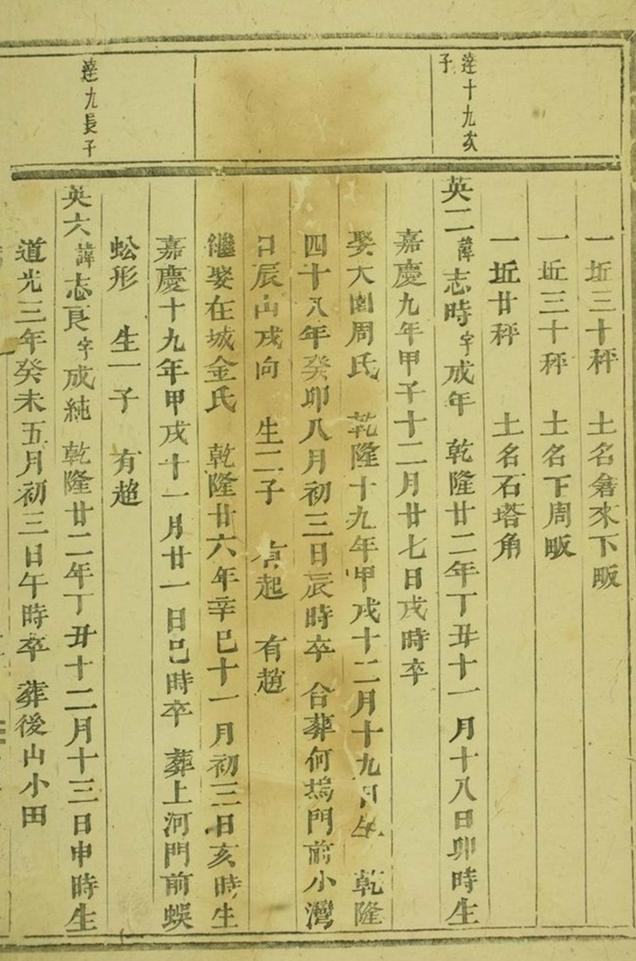 一坵三十秤　土名畬來下畈
一坵三十秤　土名下周畈
一坵廿秤　土名石塔角
達十九次子
英二諱志時字成年　乾隆廿二年丁丑十一月十八日卯時生
嘉慶九年甲子十二月廿七日戌時卒
娶大園周氏　乾隆十九年甲戌十二月十九日生　乾隆
四十八年癸卯八月初三日辰時卒　合葬何塢門前小灣
日辰山戌向　生二子　有起　有趙
繼娶在城金氏　乾隆廿六年辛巳十一月初三日亥時生
嘉慶十九年甲戌十一月廿一日巳時卒　葬上河門前蜈
蚣形　生一子　有趙
達九長子
英六諱志良字成純　乾隆廿二年丁丑十二月十三日申時生
道光三年癸未五月初三日午時卒　葬後山小田